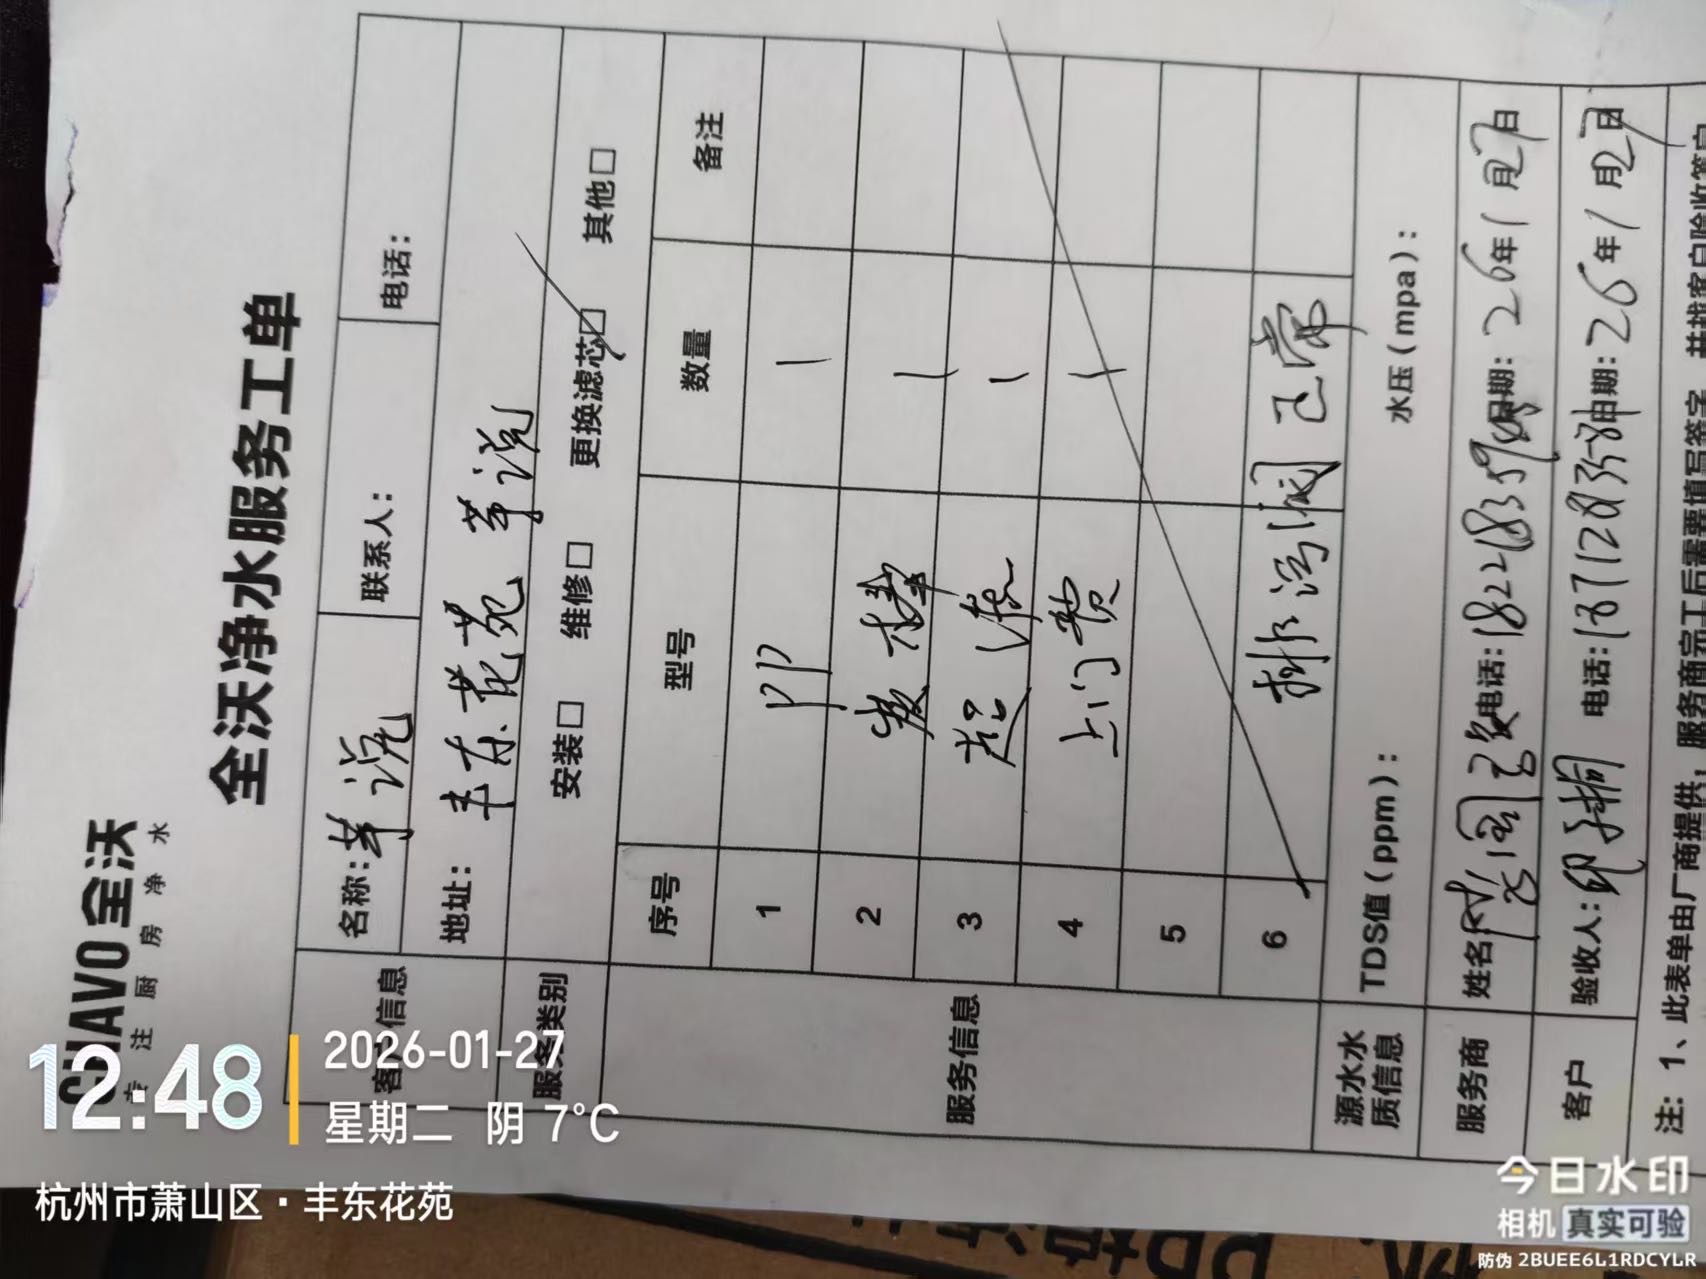 CHAVO 全沃
专注厨房净水
全沃净水服务工单
客户信息 名称:茅说 联系人: 电话:
地址: 丰东花苑 茅说
服务类别 安装□ 维修□ 更换滤芯☑ 其他□
服务信息 序号 型号 数量 备注
1 PP 1
2 炭棒 1
3 超滤 1
4 上门费 1
5
6 排污阀已带
源水水质信息 TDS值(ppm): 水压(mpa):
服务商 姓名 电话: 日期: 26年1月27日
客户 验收人: 电话: 日期: 26年1月27日
注: 1、此表单由厂商提供,服务商完工后需要填写签字,并找客户验收签字
12:48
2026-01-27
星期二 阴 7°C
杭州市萧山区·丰东花苑
今日水印
相机 真实可验
防伪 2BUEE6L1RDCYLR